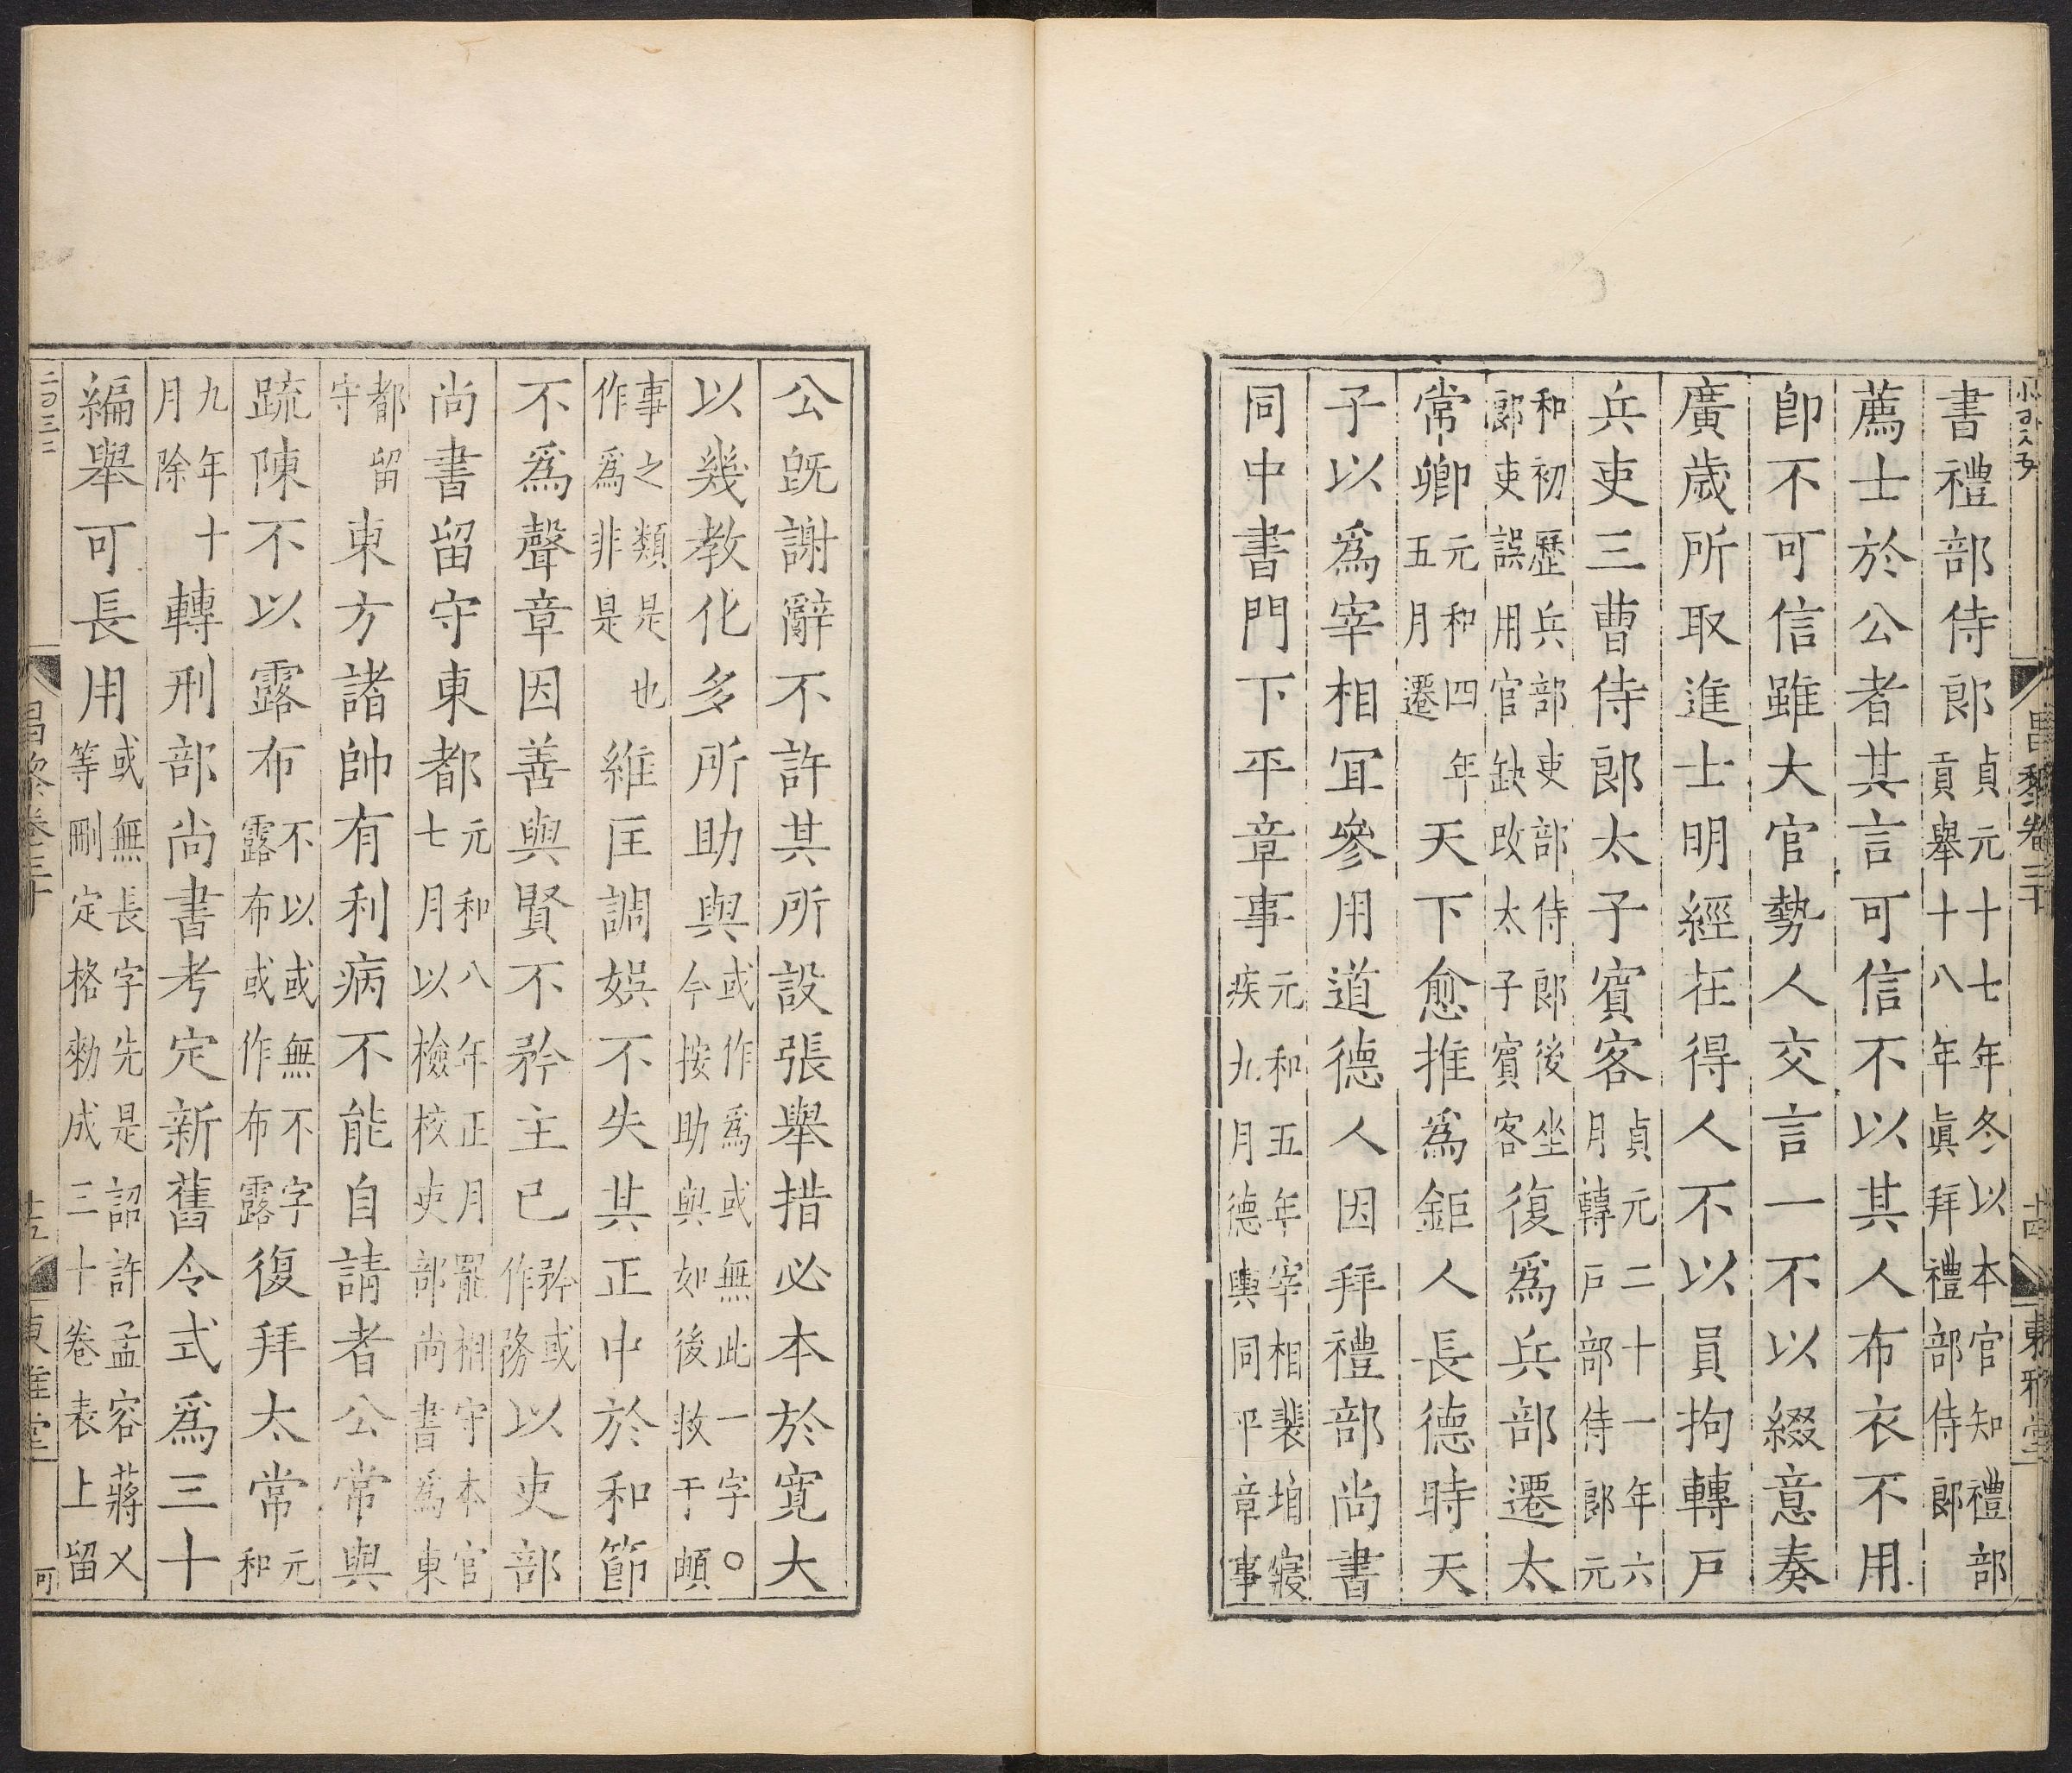 昌黎卷三十 十四 東雅堂
書禮部侍郎貞元十七年冬以本官知禮部貢舉十八年眞拜禮部侍郎
薦士於公者其言可信不以其人布衣不用
卽不可信雖大官勢人交言一不以綴意奏
廣歲所取進士明經在得人不以員拘轉戸
兵吏三曹侍郎太子賓客貞元二十一年六月轉戸部侍郎元
和初歷兵部吏部侍郎後坐郎吏誤用官缺改太子賓客復爲兵部遷太
常卿元和四年五月遷天下愈推爲鉅人長德時天
子以爲宰相冝參用道德人因拜禮部尚書
同中書門下平章事元和五年宰相裴垍寢疾九月德輿同平章事
公旣謝辭不許其所設張舉措必本於寛大
以幾敎化多所助與或作爲或無此一字○今按助與如後救于頔
事之類是也作爲非是維匡調娛不失其正中於和節
不爲聲章因善與賢不矜主已矜或作務以吏部
尚書留守東都元和八年正月罷相守本官七月以檢校吏部尚書爲東
都留守東方諸帥有利病不能自請者公常與
疏陳不以露布不以或無不字露布或作布露復拜太常元和
九年十月除轉刑部尚書考定新舊令式爲三十
編舉可長用或無長字先是詔許孟容蔣乂等刪定格勑成三十卷表上留
昌黎卷三十 十五 東雅堂 何